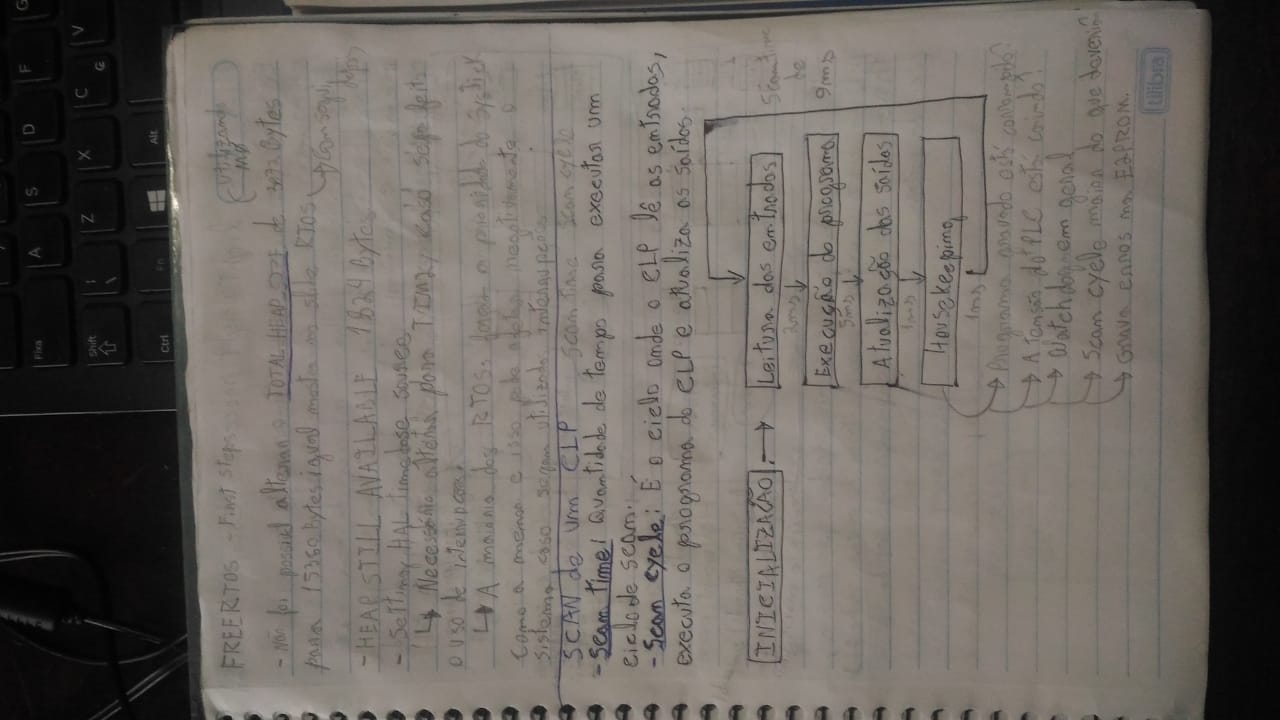 FREERTOS - First steps
Utilizando
- Não foi possível alterar o TOTAL HEAP SIZE de 3072 Bytes
para 15360 bytes igual mostra no slide RTOS.
- HEAP STILL AVAILABLE 1824 Bytes
- Setting HAL timebase source
↳ Necessário alterar para TIM2, caso seja feito
o uso de interrupção.
↳ A maioria dos RTOS, fazem a prioridade do Systick
como a menor e isso pode afetar negativamente o
sistema caso sejam utilizada interrupções.
SCAN de um CLP scan time scan cycle
- Scan time: Quantidade de tempo para executar um
ciclo de scan.
- Scan cycle: É o ciclo onde o CLP lê as entradas,
executa o programa do CLP e atualiza as saídas.
INICIALIZAÇÃO →
Leitura das entradas
2ms
Execução do programa
5ms
Atualização das saídas
1ms
Housekeeping
1ms
Scan time
de
9ms
→ Programa gravado está corrompido?
→ A tensão do PLC está caindo?
→ Watchdog em geral
→ Scan cycle maior do que deveria
→ Grava erros na E2PROM.
tilibra
Fixa
A
S
D
F
G
Shift
\
Z
X
C
V
Ctrl
Fn
Alt